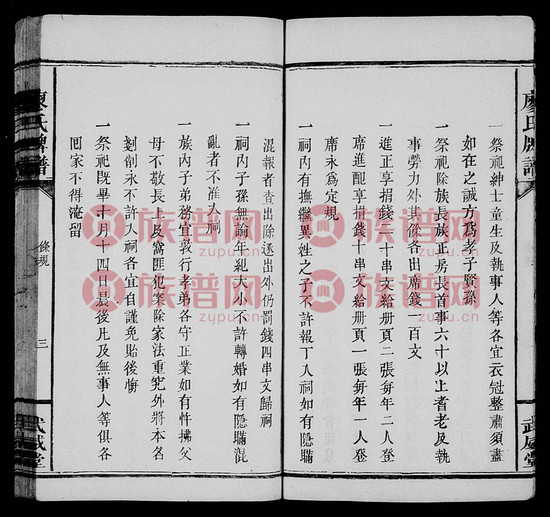 廖氏牌譜
一祭祀紳士童生及執事人等各宜衣冠整肅須盡
如在之誠方乃孝子賢孫
一祭祀除族長族正房長首事六十以上者老及執
事勞力外其餘各出席錢一百文
一進正享捐錢二十串文給册頁二張每年二人登
席進配享捐錢十串文給册頁一張每年一人登
席永為定規
一祠內有撫繼異姓之子不許報丁入祠如有隱瞞
武威堂
混報者查出除逐出外仍罰錢四串文歸祠
一祠內子孫無論年紀大小不許轉婚如有隱瞞混
亂者不准入祠
一族內子弟務宜敦行孝弟各守正業如有忤拂父
母不敬長上及窩匪犯案除家法重究外將本名
剗削永不許入祠各宜自謹免貽後悔
一祭祀既畢十月十四日晨後凡及無事人等俱各
回家不得淹留
廖氏牌譜
條規
三
武威堂
族谱网
zupu.cn